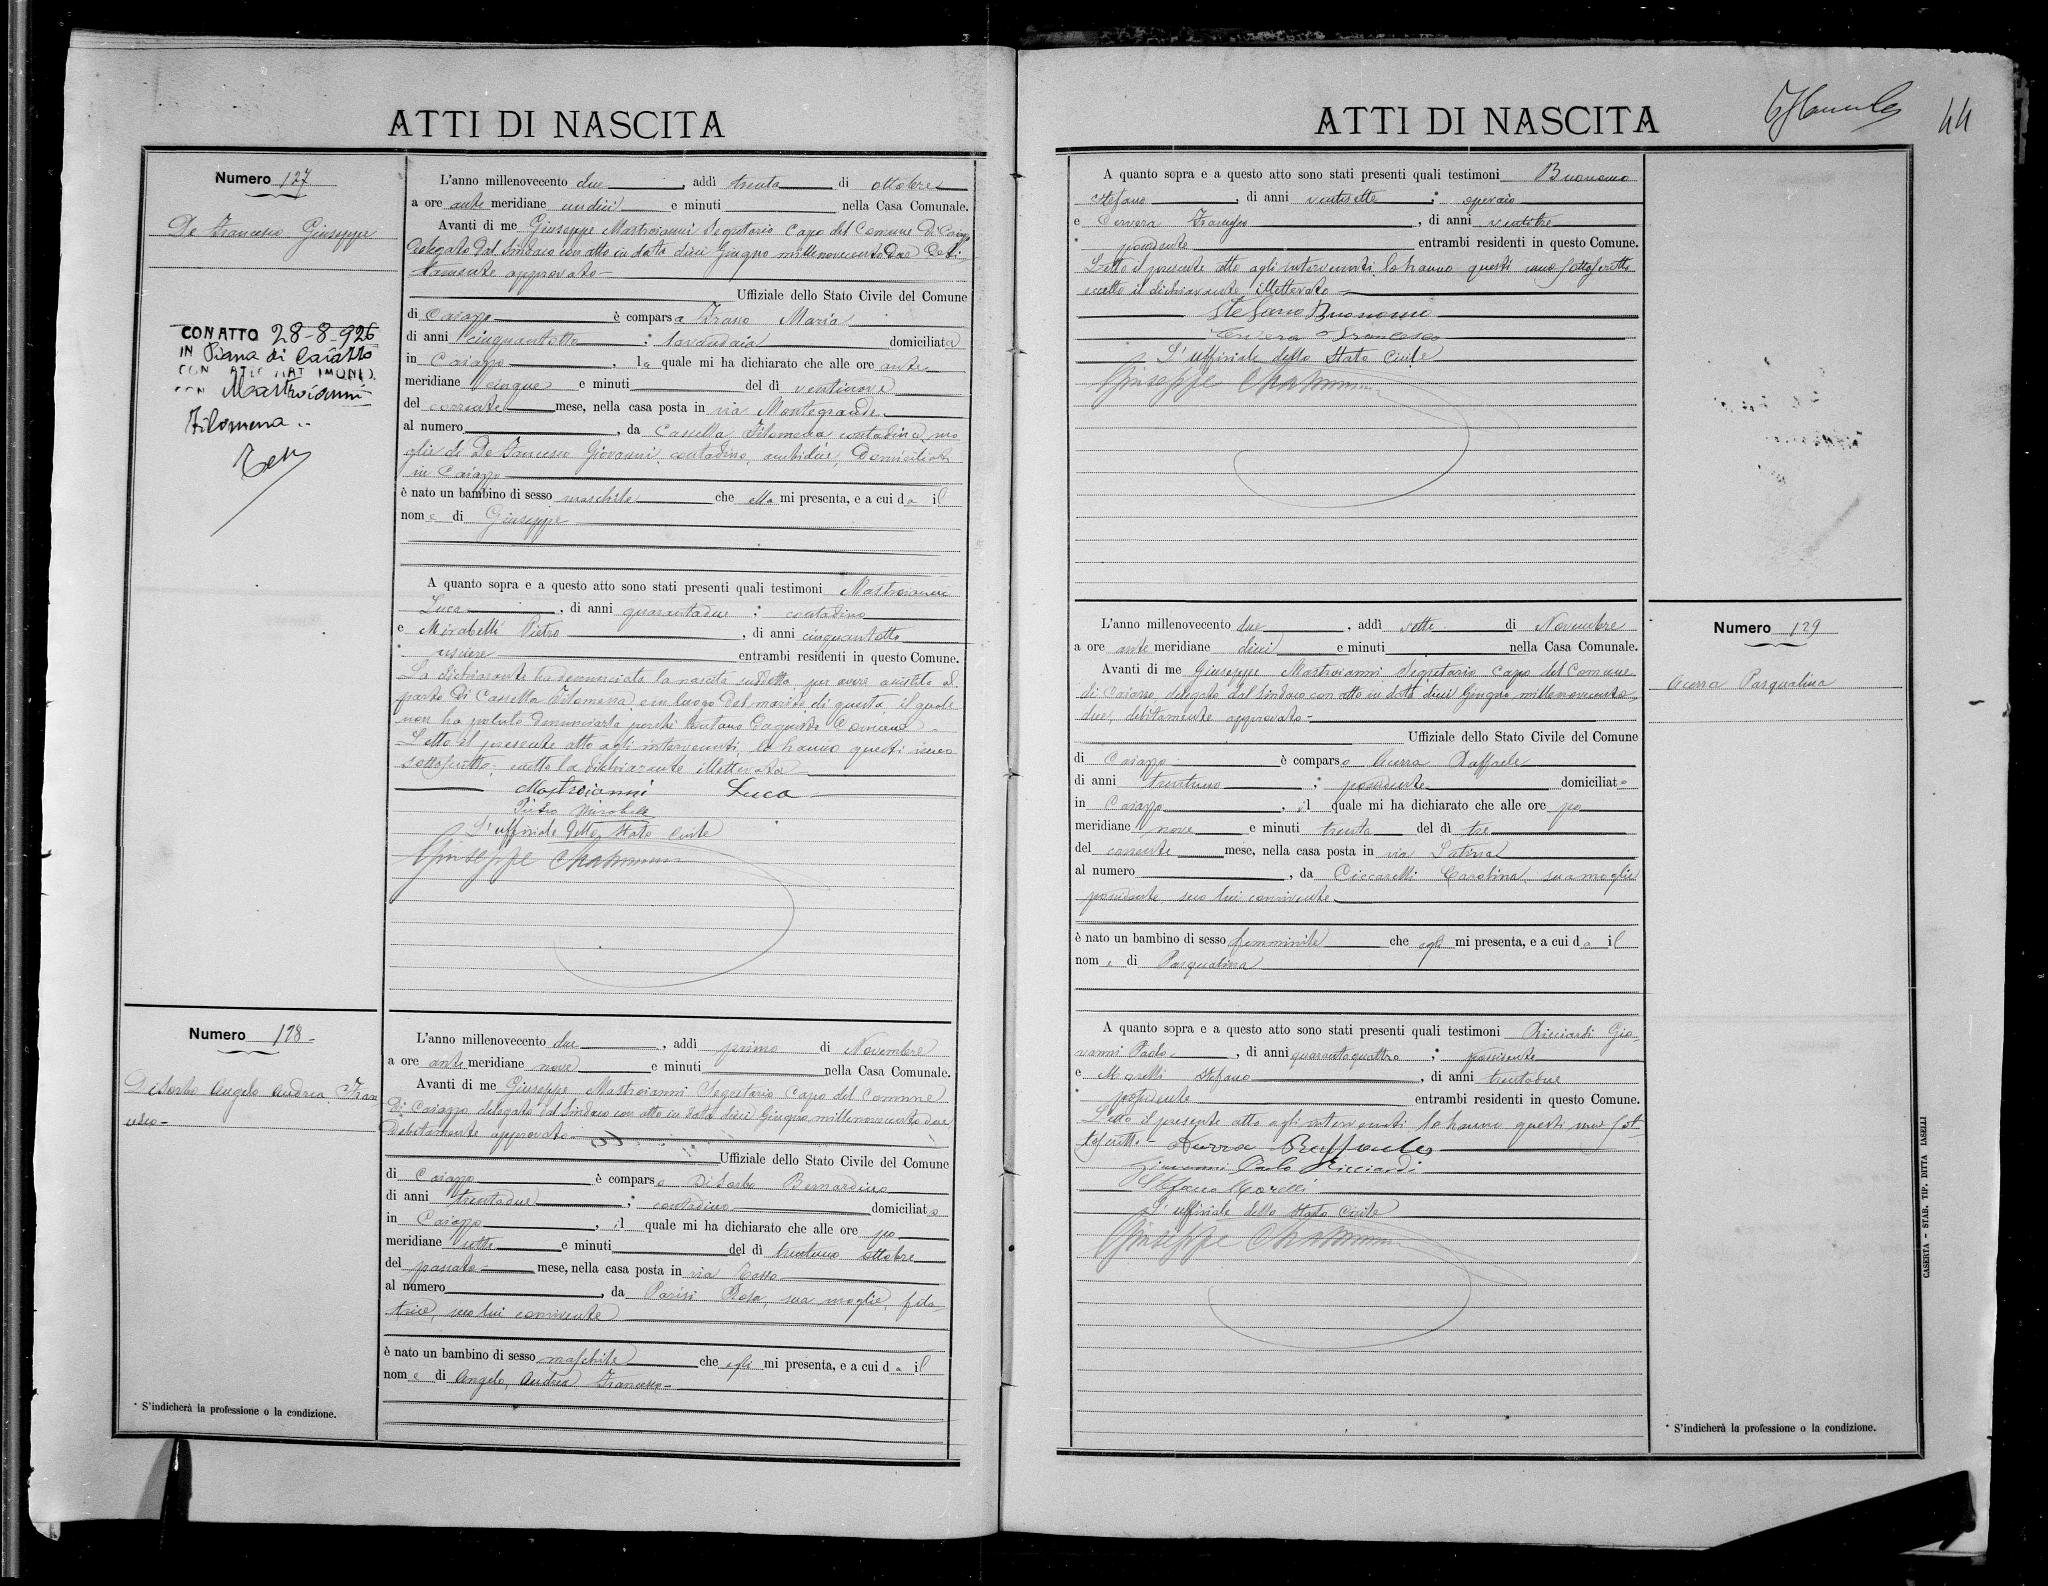 ATTI DI NASCITA
Numero 127
De Francesco Giuseppe
CON ATTO 28-8-926
IN Piana di Caiazzo
CON ATTO MATRIMONIO
CON Mastroianni
Filomena
L'anno millenovecento due, addì trenta di ottobre
a ore ante meridiane undici e minuti nella Casa Comunale.
Avanti di me Giuseppe Mastroianni Segretario Capo del Comune di Caiazzo
delegato dal Sindaco con atto in data dieci Giugno millenovecentodue debi-
tamente approvato
Uffiziale dello Stato Civile del Comune
di Caiazzo è comparsa Maria
di anni cinquantotto; domiciliata
in Caiazzo, la quale mi ha dichiarato che alle ore ante
meridiane cinque e minuti del dì ventinove
del corrente mese, nella casa posta in via Montegrande
al numero, da Cassella Filomena contadina, mo-
glie di De Francesco Giovanni, contadino, ambidue domiciliati
in Caiazzo
è nato un bambino di sesso maschile che ella mi presenta, e a cui da il
nome di Giuseppe
A quanto sopra e a questo atto sono stati presenti quali testimoni Mastroianni
Luca, di anni quarantadue; contadino
e Mirabelli Pietro, di anni cinquantotto
* usciere entrambi residenti in questo Comune.
La dichiarante ha denunciata la nascita suddetta per avere assistito al
parto di Cassella Filomena e in luogo del marito di questa, il quale
non ha potuto denunciarla perchè lontano da questo Comune
Letto il presente atto agli intervenuti, lo hanno questi meco
sottoscritto, eccetto la dichiarante illetterata
Mastroianni Luca
Pietro Mirabelli
L'uffiziale dello Stato Civile
Giuseppe Mastroianni
Numero 128
Di Sorbo Angelo Andrea Fran-
cesco
L'anno millenovecento due, addì primo di Novembre
a ore ante meridiane nove e minuti nella Casa Comunale.
Avanti di me Giuseppe Mastroianni Segretario Capo del Comune
di Caiazzo delegato dal Sindaco con atto in data dieci Giugno millenovecento due
debitamente approvato
Uffiziale dello Stato Civile del Comune
di Caiazzo è comparso Di Sorbo Bernardino
di anni trentadue; contadino domiciliato
in Caiazzo, il quale mi ha dichiarato che alle ore po
meridiane sette e minuti del dì trentuno ottobre
del passato mese, nella casa posta in via
al numero, da Parisi Rosa, sua moglie, fila-
trice, seco lui convivente
è nato un bambino di sesso maschile che egli mi presenta, e a cui da il
nome di Angelo, Andrea Francesco
* S'indicherà la professione o la condizione.
ATTI DI NASCITA
44
A quanto sopra e a questo atto sono stati presenti quali testimoni Buonomo
Stefano, di anni ventisette; operaio
e Cervera Francesco, di anni ventitre
* possidente entrambi residenti in questo Comune.
Letto il presente atto agli intervenuti lo hanno questi meco sottoscritto
eccetto il dichiarante illetterato
Stefano Buonomo
Cervera Francesco
L'uffiziale dello Stato Civile
Giuseppe Mastroianni
Numero 129
Acerra Pasqualina
L'anno millenovecento due, addì sette di Novembre
a ore ante meridiane dieci e minuti nella Casa Comunale.
Avanti di me Giuseppe Mastroianni Segretario Capo del Comune
di Caiazzo delegato dal Sindaco con atto in data dieci Giugno millenovecento
due, debitamente approvato
Uffiziale dello Stato Civile del Comune
di Caiazzo è comparso Acerra Raffaele
di anni trentuno; possidente domiciliato
in Caiazzo, il quale mi ha dichiarato che alle ore po
meridiane nove e minuti trenta del dì tre
del corrente mese, nella casa posta in via Latina
al numero, da Ciccarelli Carolina, sua moglie
possidente seco lui convivente
è nato un bambino di sesso femminile che egli mi presenta, e a cui da il
nome di Pasqualina
A quanto sopra e a questo atto sono stati presenti quali testimoni Ricciardi Gio-
vanni Paolo, di anni quarantaquattro; possidente
e Morelli Stefano, di anni trentadue
* possidente entrambi residenti in questo Comune.
Letto il presente atto agli intervenuti lo hanno questi meco sot-
toscritto Acerra Raffaele
Giovanni Paolo Ricciardi
Stefano Morelli
L'uffiziale dello Stato Civile
Giuseppe Mastroianni
* S'indicherà la professione o la condizione.
CASERTA - STAB. TIP. DITTA IASELLI